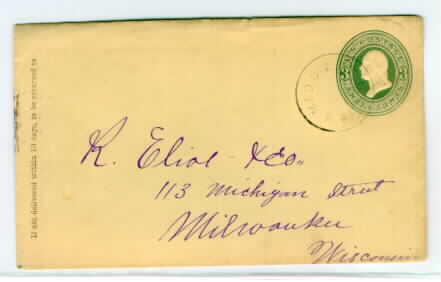 If not delivered within 10 days, to be returned to
R. Eliot & Co.
113 Michigan Street
Milwaukee
Wisconsin